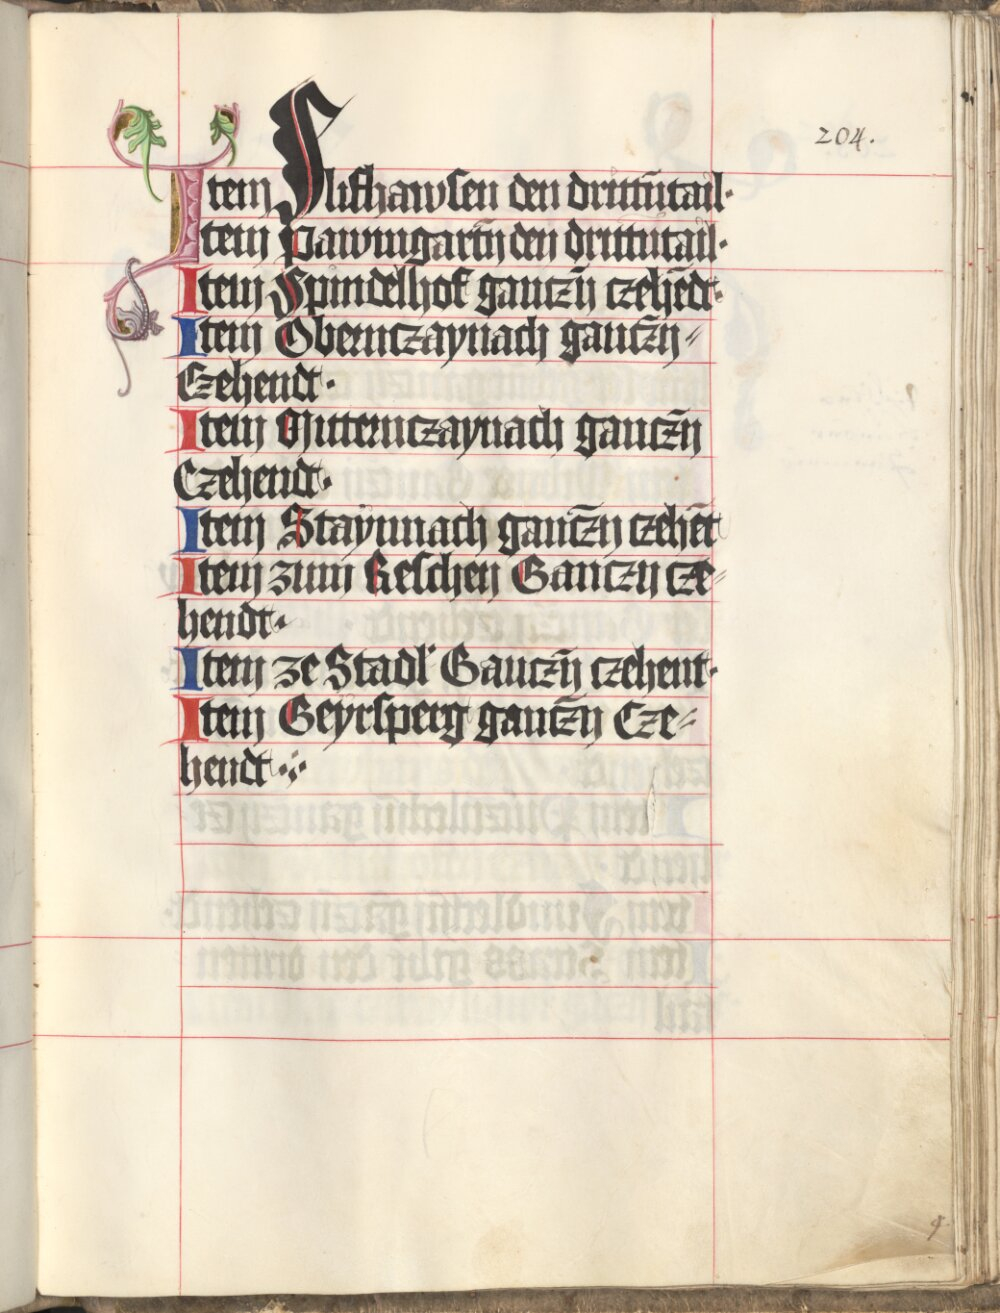 204.
Item Slifhawsen den dritt̄ntail·
Item Pawmgart̄n den drittntail·
Item Spindelhof gancz̄n czehēdt·
Item Obernczaynach gancz̄n⸗
Czehendt·
Item Mitternczaynach gancz̄n
Czehendt·
Item Staynnach gancz̄n czehēt
Item zum Keschen Ganczn cze⸗
hendt·
Item ze Stadl' Gancz̄n czehent·
Item Geyrsperg gancz̄n Cze⸗
hendt·